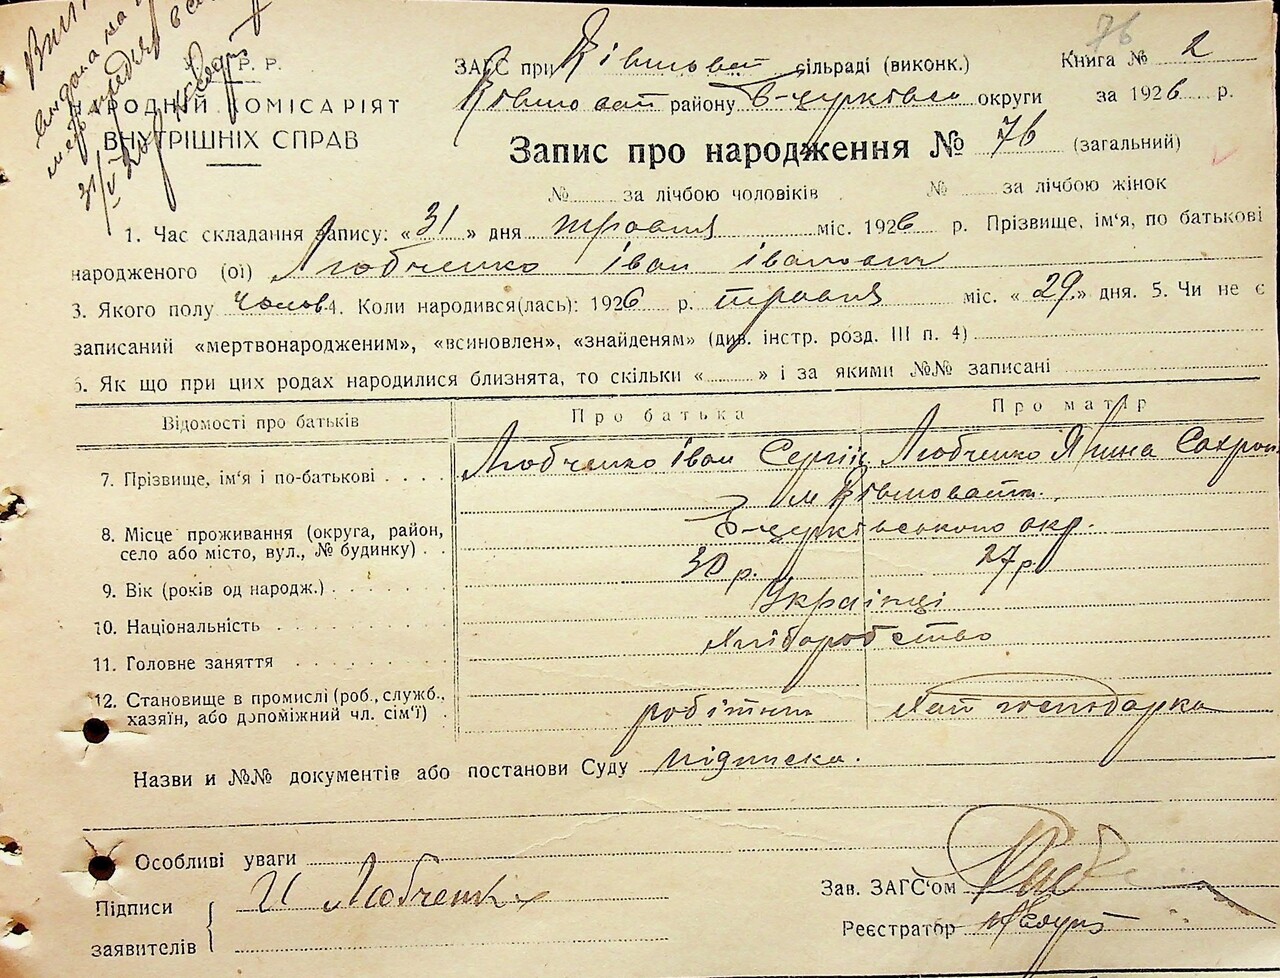 У. Р. Р.
РОДНІЙ КОМІСАРІЯТ
ВНУТРІШНІХ СПРАВ
76
ЗАГС при сільраді (виконк.) Книга № 2
району Б-церківсько округи за 1926 р.
Запис про народження № 76 (загальний)
№ за лічбою чоловіків № за лічбою жінок
1. Час складання запису: «31» дня травня міс. 1926 р. Прізвище, ім'я, по батькові
народженого (ої) Любченко Іван Іванович
3. Якого полу чолов 4. Коли народився(лась): 1926 р. травня міс. «29» дня. 5. Чи не є
записаний «мертвонародженим», «всиновлен», «знайденям» (див. інстр. розд. III п. 4)
6. Як що при цих родах народилися близнята, то скільки « » і за якими №№ записані
Відомості про батьків Про батька Про матір
7. Прізвище, ім'я і по-батькові Любченко Іван Сергіїв Любченко Сахрон
8. Місце проживання (округа, район, село або місто, вул., № будинку) м
Б-церківського окр.
9. Вік (років од народж.) 30 р. 27 р.
10. Національність Українці
11. Головне заняття Хліборобство
12. Становище в промислі (роб., служб., хазяїн, або допоміжний чл. сім'ї) робітник Хат господарка
Назви и №№ документів або постанови Суду підписка.
Особливі уваги
Підписи заявителів И Любченко
Зав. ЗАГС'ом
Реєстратор